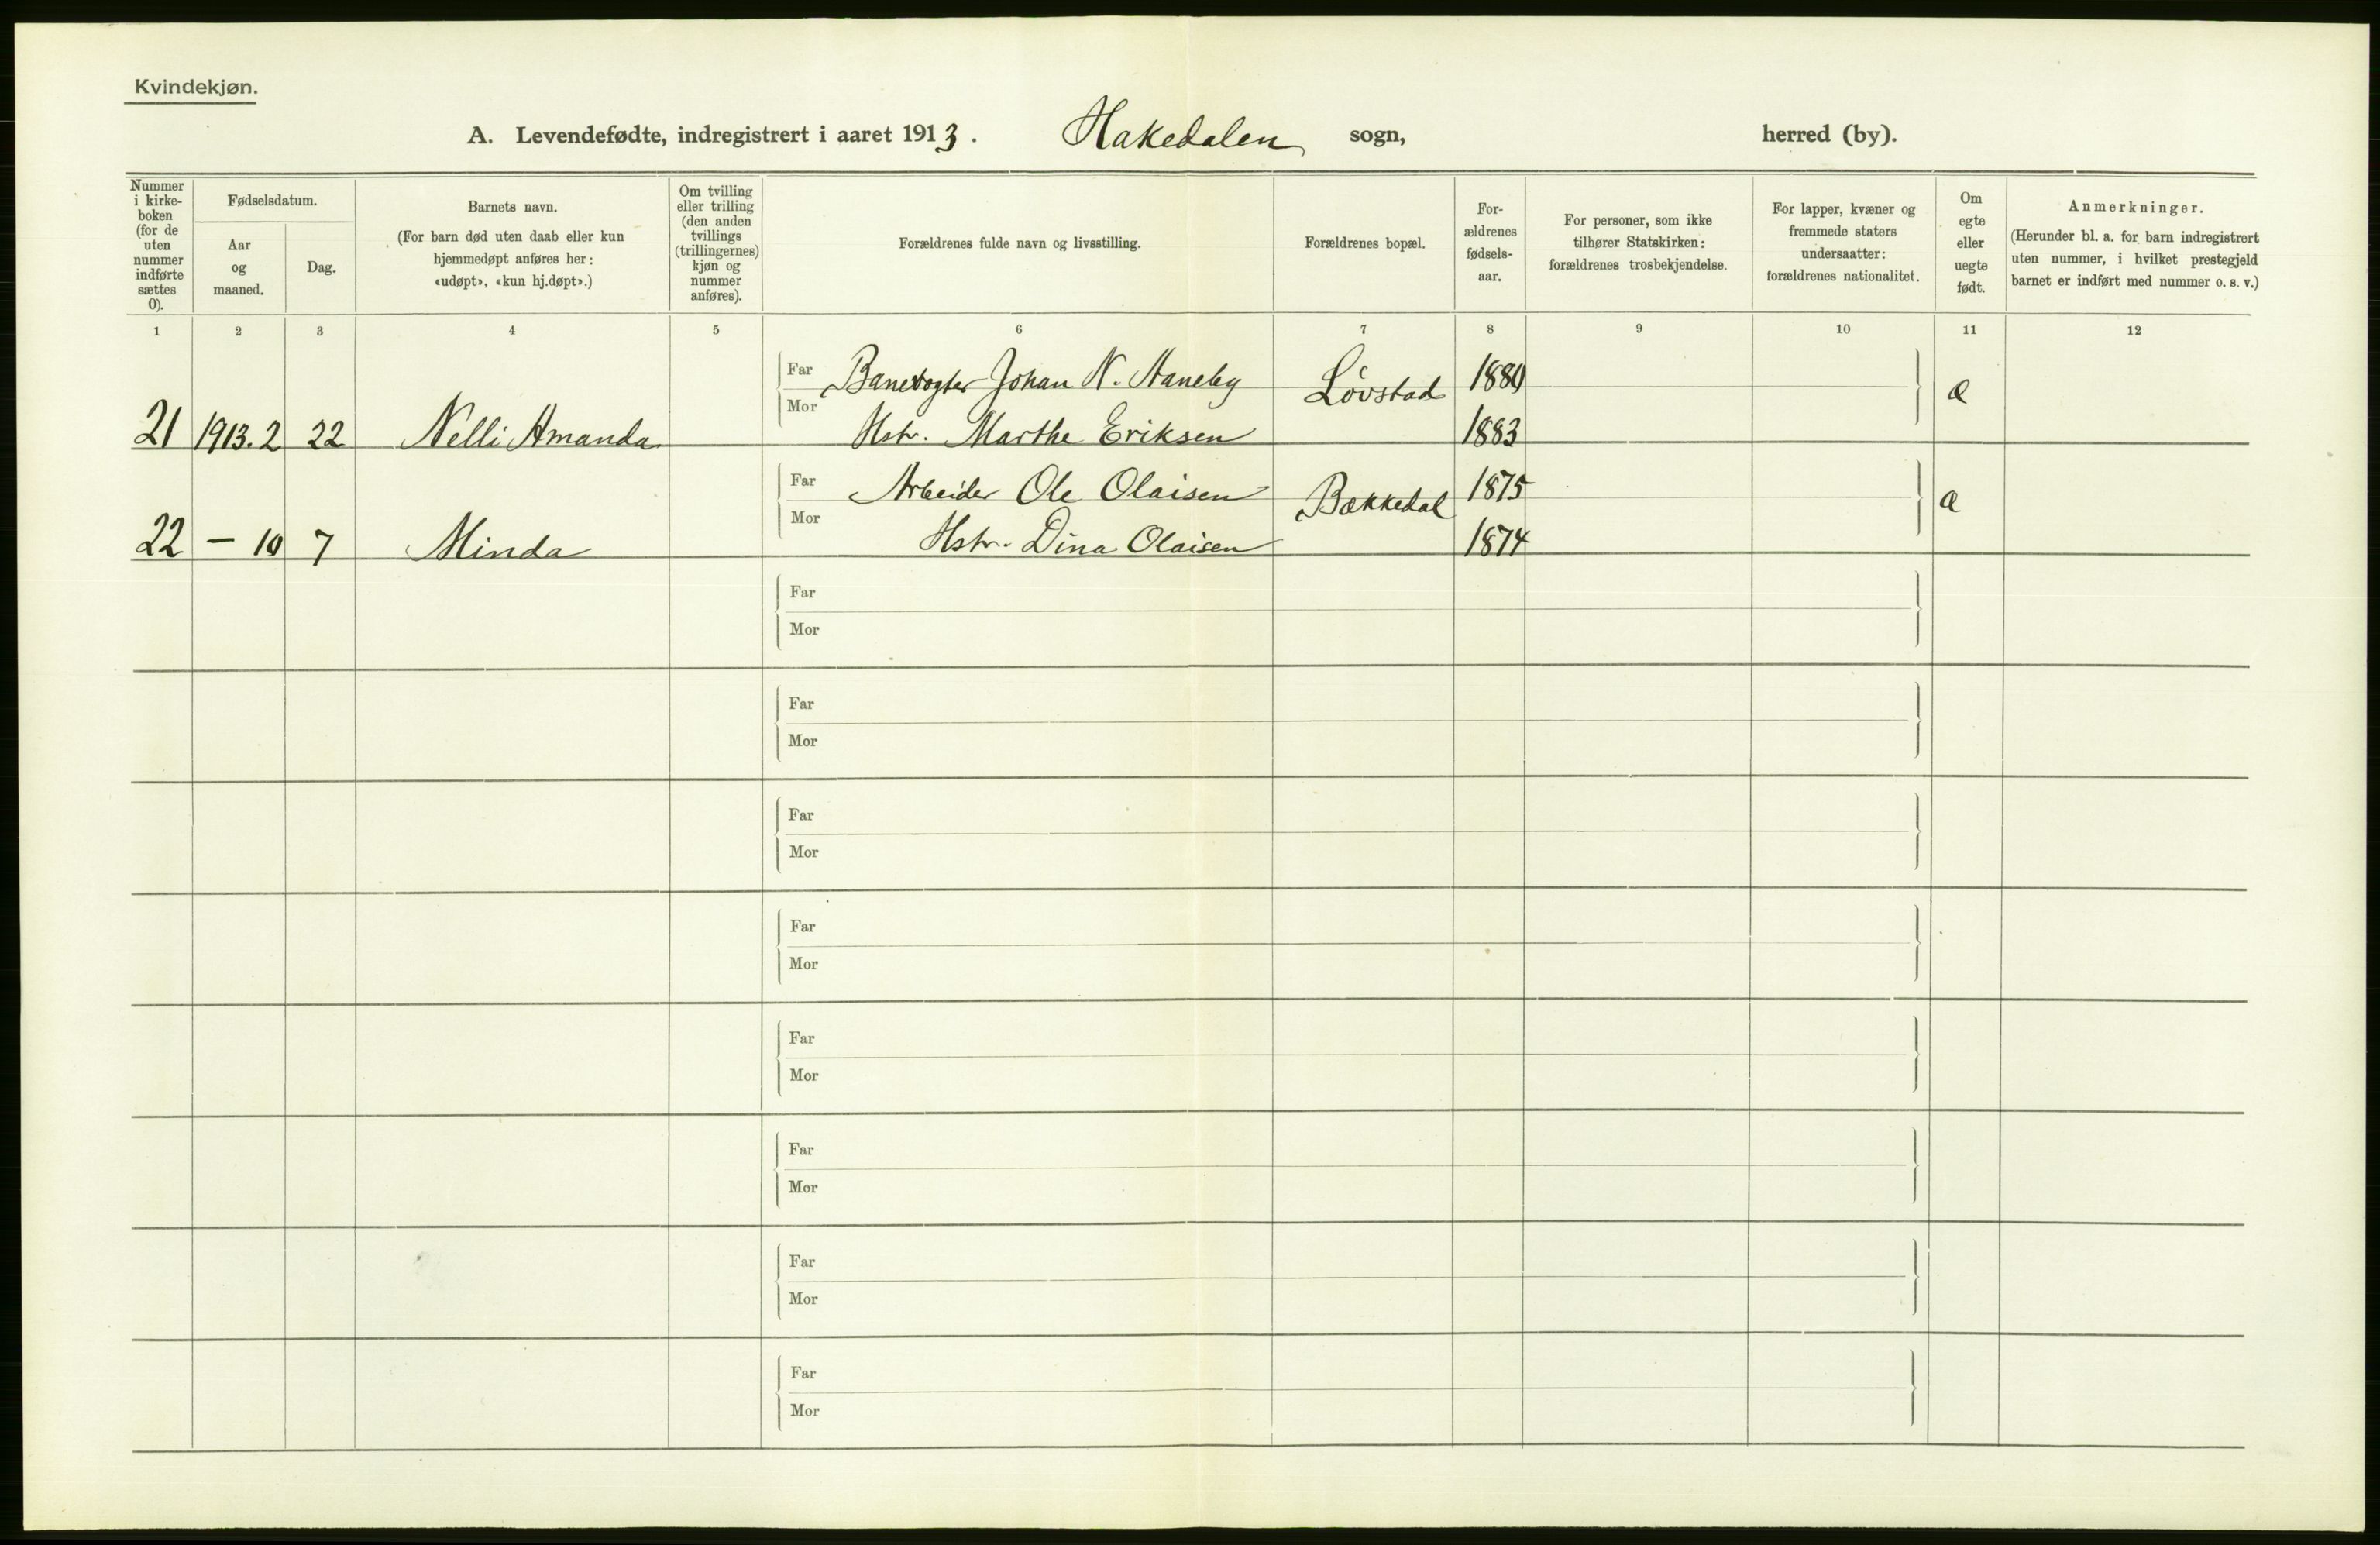 Kvindekjøn.
A. Levendefødte, indregistrert i aaret 1913. Hakedalen sogn, herred (by).
Nummer i kirke-boken (for de uten nummer indførte sættes 0).
Fødselsdatum.
Aar og maaned.
Dag.
Barnets navn.
(For barn død uten daab eller kun hjemmedøpt anføres her: «udøpt», «kun hj.døpt».)
Om tvilling eller trilling (den anden tvillings (trillingernes) kjøn og nummer anføres).
Forældrenes fulde navn og livsstilling.
Forældrenes bopæl.
For-ældrenes fødsels-aar.
For personer, som ikke tilhører Statskirken: forældrenes trosbekjendelse.
For lapper, kvæner og fremmede staters undersaatter: forældrenes nationalitet.
Om egte eller uegte født.
Anmerkninger.
(Herunder bl. a. for barn indregistrert uten nummer, i hvilket prestegjeld barnet er indført med nummer o. s. v.)
1 2 3 4 5 6 7 8 9 10 11 12
Far Banevogter Johan N. Haneby Løvstad 1880 æ
21 1913.2 22 Nelli Amanda Mor Hstr. Marthe Eriksen 1883
Far Arbeider Ole Olaisen Bækkedal 1875 æ
22 – 10 7 Minda Mor Hstr. Dina Olaisen 1874
Far
Mor
Far
Mor
Far
Mor
Far
Mor
Far
Mor
Far
Mor
Far
Mor
Far
Mor